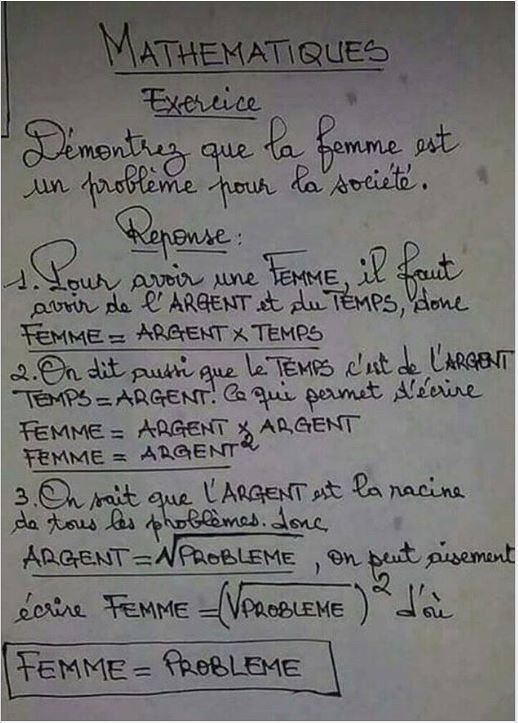 MATHEMATIQUES
Exercice
Démontrez que la femme est
un problème pour la société.
Reponse :
1. Pour avoir une FEMME, il faut
avoir de l'ARGENT et du TEMPS, donc
FEMME = ARGENT x TEMPS
2. On dit aussi que le TEMPS c'est de l'ARGENT
TEMPS = ARGENT. Ce qui permet d'écrire
FEMME = ARGENT x ARGENT
FEMME = ARGENT²
3. On sait que l'ARGENT est la racine
de tous les problèmes. donc
ARGENT = √PROBLEME, on peut aisement
écrire FEMME = (√PROBLEME)² d'où
FEMME = PROBLEME